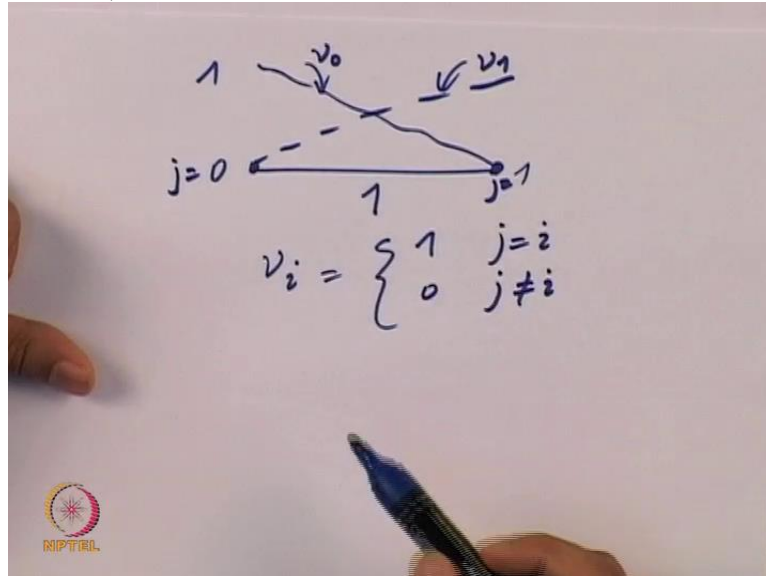 1 ν₀ ν₁
j=0 j=1
1
νᵢ = { 1 j=i
0 j≠i
NPTEL